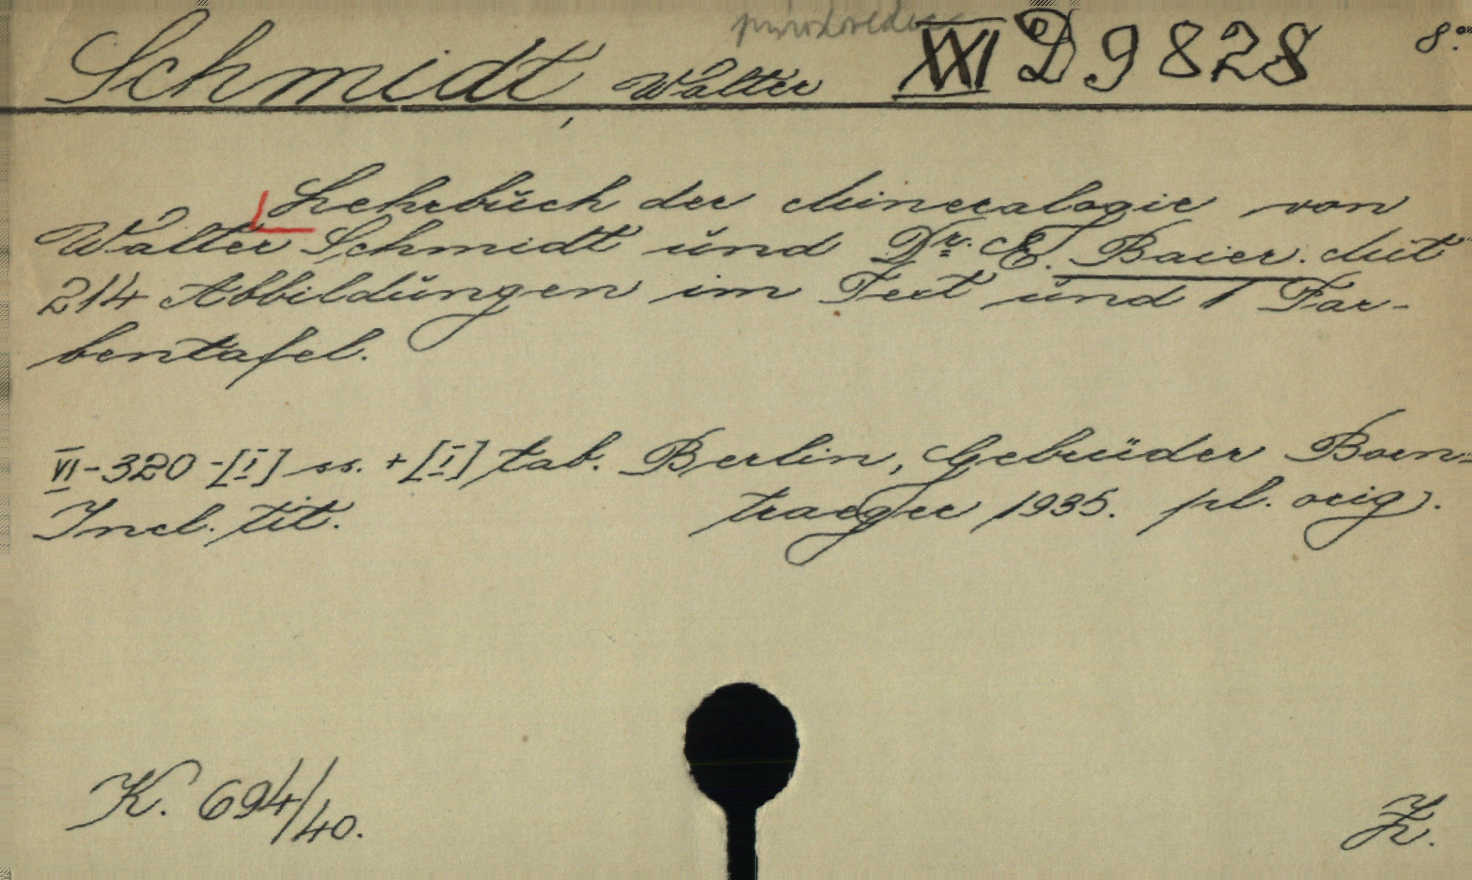 Schmidt, Walter XXI D 9828 8°
Lehrbuch der Mineralogie von
Walter Schmidt und Dr. E. Baier. Mit
214 Abbildungen im Text und 1 Far-
bentafel.
VI-320-[I] ss. + [I] tab. Berlin, Gebrüder Born-
Incl. tit. traeger 1935. pl. orig.
K. 694/40.